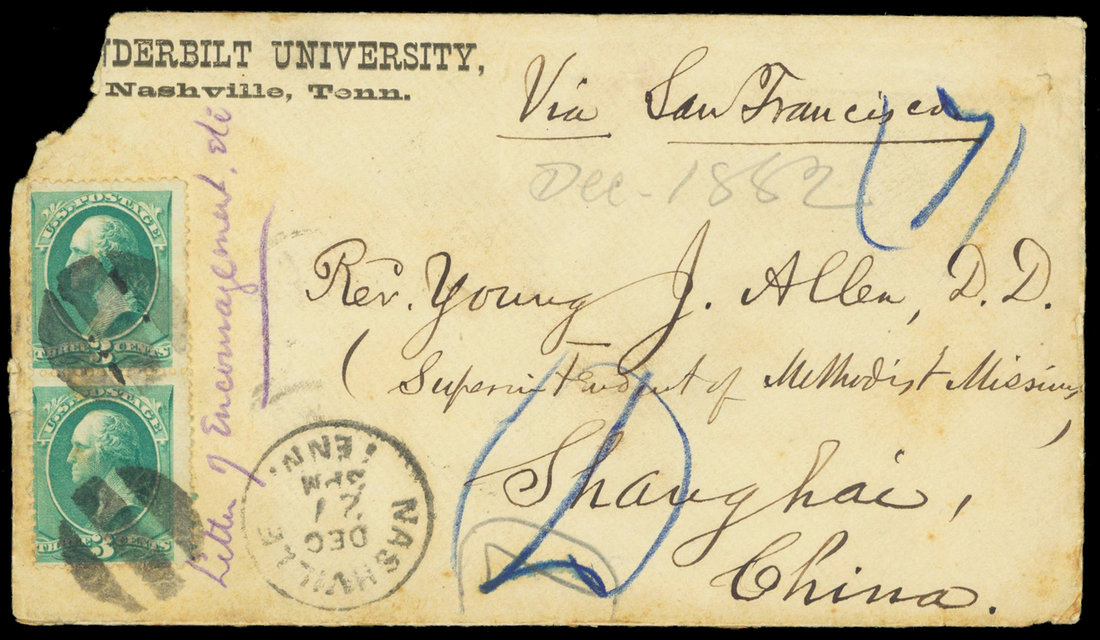 NDERBILT UNIVERSITY,
Nashville, Tenn.
Via San Francisco
(7)
Dec - 1882
Letter of Encouragement, etc
U.S. POSTAGE
THREE 3 CENTS
U.S. POSTAGE
THREE 3 CENTS
Rev. Young J. Allen, D.D.
(Superintendent of Methodist Missions)
Shanghai,
China.
NASHVILLE
DEC
1
PM
TENN.